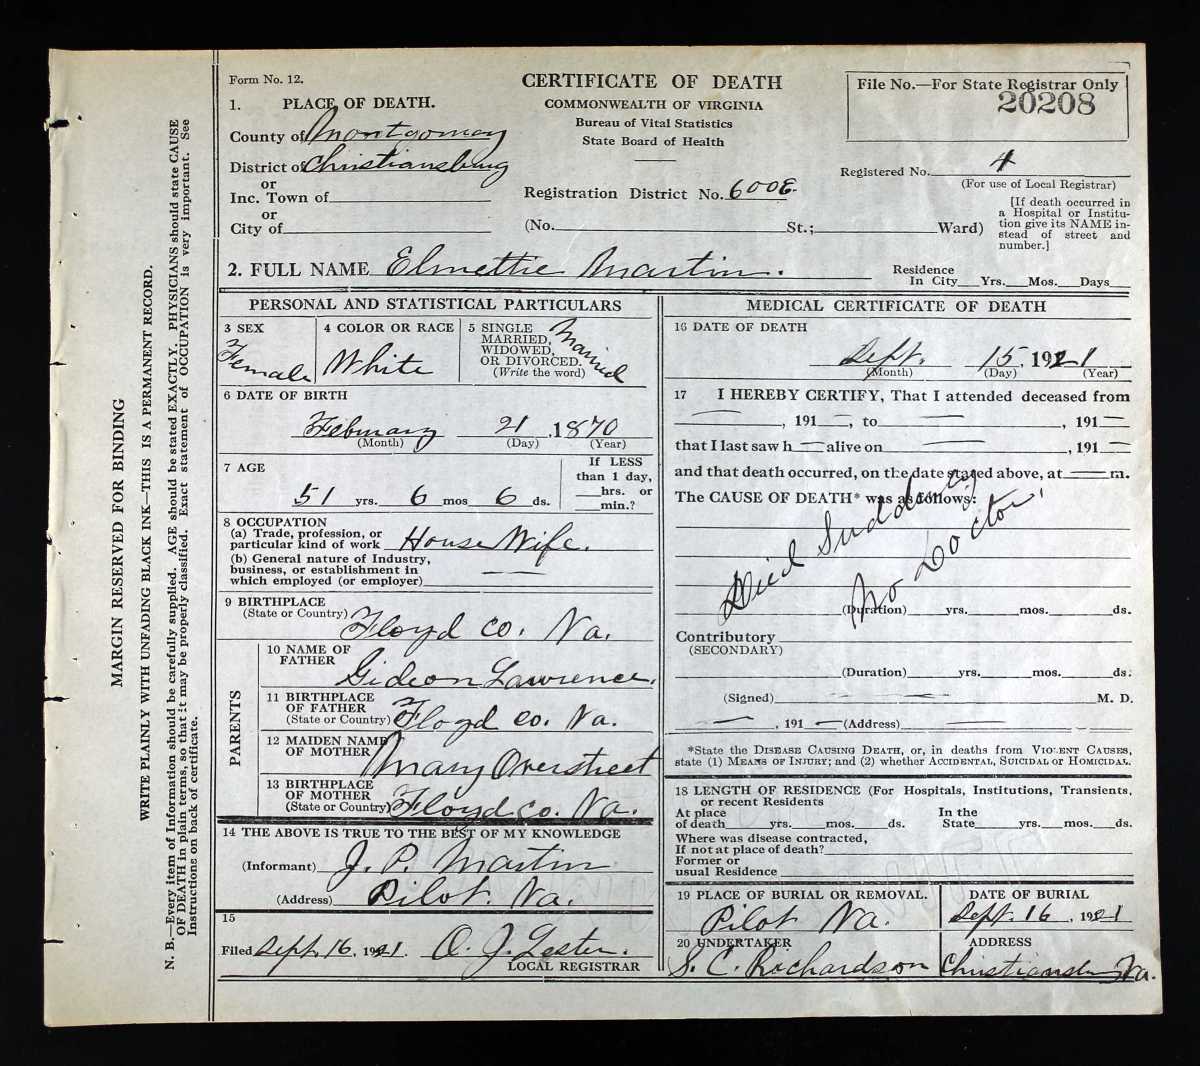 MARGIN RESERVED FOR BINDING
WRITE PLAINLY WITH UNFADING BLACK INK—THIS IS A PERMANENT RECORD.
N. B.—Every item of Information should be carefully supplied. AGE should be stated EXACTLY. PHYSICIANS should state CAUSE
OF DEATH in plain terms, so that it may be properly classified. Exact statement of OCCUPATION is very important. See
Instructions on back of certificate.
Form No. 12.
CERTIFICATE OF DEATH
COMMONWEALTH OF VIRGINIA
Bureau of Vital Statistics
State Board of Health
File No.—For State Registrar Only
20208
1. PLACE OF DEATH.
County of Montgomery
District of Christiansburg
or
Inc. Town of
or
City of
Registration District No. 600E.
Registered No. 4
(For use of Local Registrar)
(No. St.; Ward)
[If death occurred in
a Hospital or Institu-
tion give its NAME in-
stead of street and
number.]
2. FULL NAME Elmettie Martin.
Residence
In City Yrs. Mos. Days
PERSONAL AND STATISTICAL PARTICULARS
3 SEX
Female
4 COLOR OR RACE
White
5 SINGLE
MARRIED,
WIDOWED,
OR DIVORCED.
(Write the word)
Married
6 DATE OF BIRTH
February 21, 1870
(Month) (Day) (Year)
7 AGE
51 yrs. 6 mos 6 ds.
If LESS
than 1 day,
hrs. or
min.?
8 OCCUPATION
(a) Trade, profession, or
particular kind of work House Wife.
(b) General nature of Industry,
business, or establishment in
which employed (or employer) —
9 BIRTHPLACE
(State or Country) Floyd co. Va.
PARENTS
10 NAME OF
FATHER
Gideon Lawrence.
11 BIRTHPLACE
OF FATHER
(State or Country) Floyd co. Va.
12 MAIDEN NAME
OF MOTHER
Mary Overstreet
13 BIRTHPLACE
OF MOTHER
(State or Country) Floyd co. Va.
14 THE ABOVE IS TRUE TO THE BEST OF MY KNOWLEDGE
(Informant) J. P. Martin
(Address) Pilot Va.
15
Filed Sept. 16, 1921. O. J. Lester.
LOCAL REGISTRAR
MEDICAL CERTIFICATE OF DEATH
16 DATE OF DEATH
Sept. 15, 1921
(Month) (Day) (Year)
17 I HEREBY CERTIFY, That I attended deceased from
—, 191 —, to —, 191 —
that I last saw h — alive on —, 191 —
and that death occurred, on the date stated above, at — m.
The CAUSE OF DEATH* was as follows:
Died Suddenly
No Doctor.
(Duration) yrs. mos. ds.
Contributory
(SECONDARY)
(Duration) yrs. mos. ds.
(Signed) — M. D.
—, 191 — (Address) —
*State the DISEASE CAUSING DEATH, or, in deaths from VIOLENT CAUSES,
state (1) MEANS OF INJURY; and (2) whether ACCIDENTAL, SUICIDAL or HOMICIDAL.
18 LENGTH OF RESIDENCE (For Hospitals, Institutions, Transients,
or recent Residents
At place
of death yrs. mos. ds.
In the
State yrs. mos. ds.
Where was disease contracted,
If not at place of death?
Former or
usual Residence
19 PLACE OF BURIAL OR REMOVAL.
Pilot Va.
DATE OF BURIAL
Sept. 16, 1921
20 UNDERTAKER
S. C. Richardson
ADDRESS
Va.